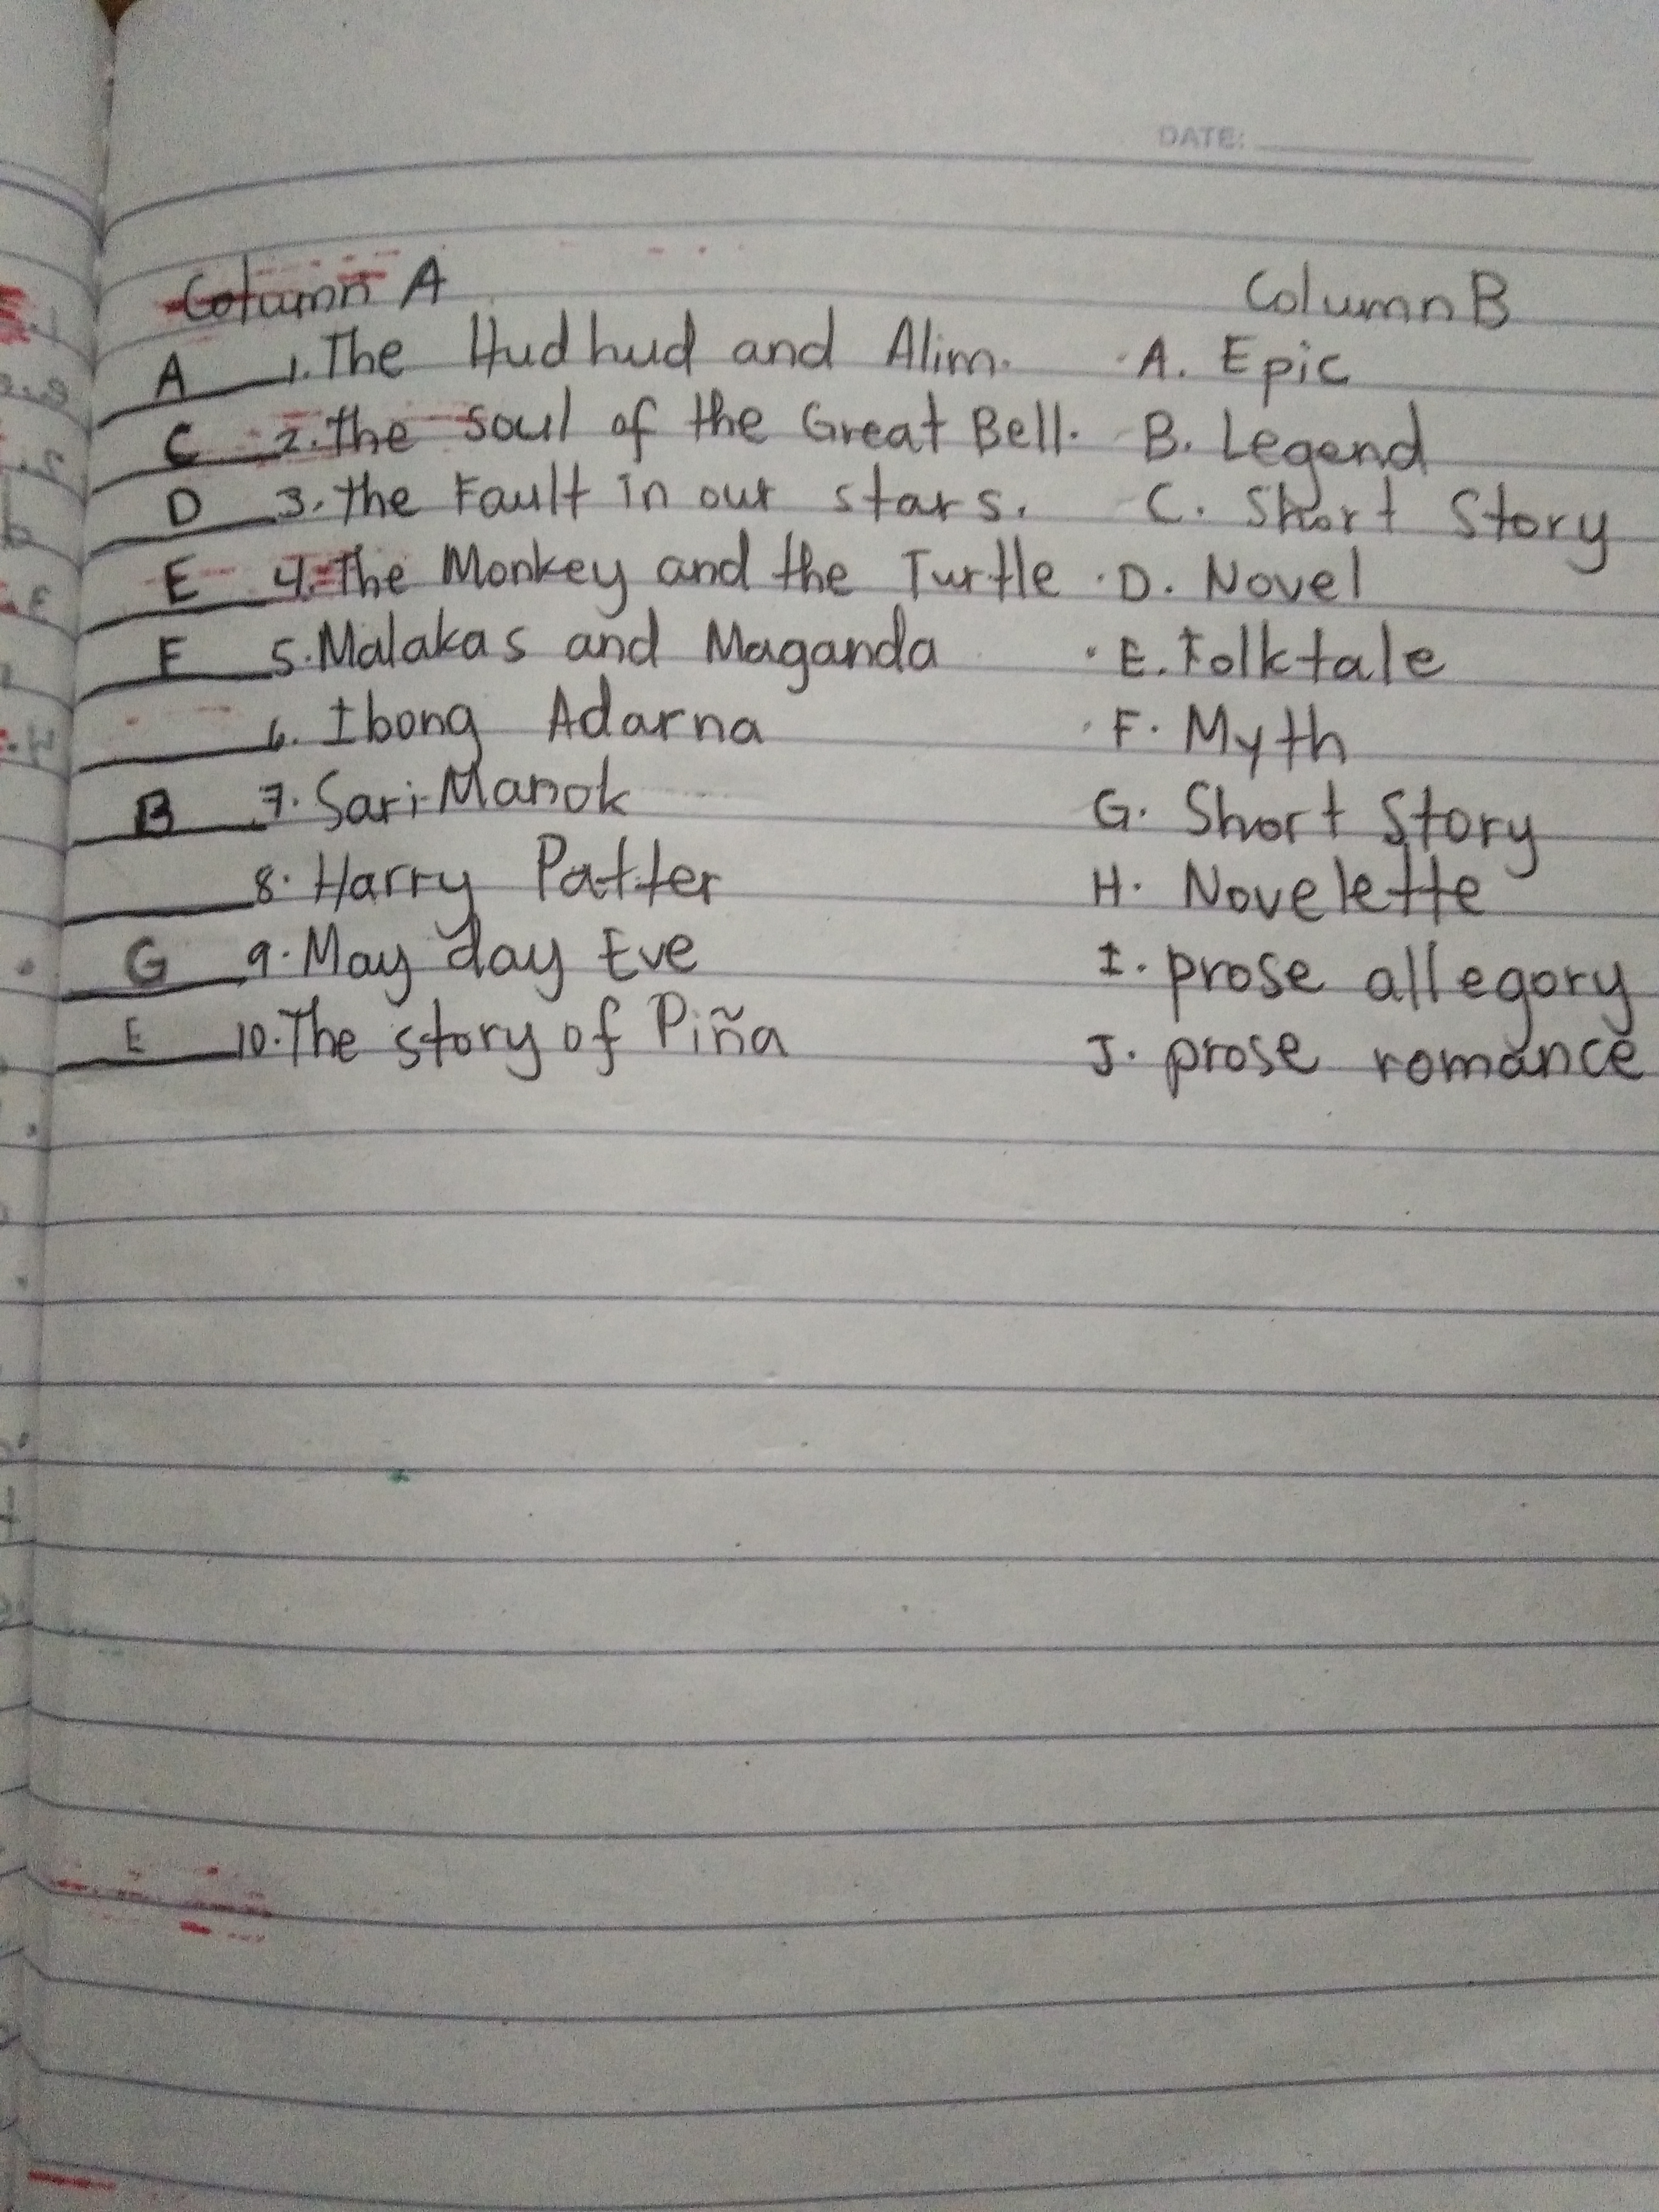 DATE:
Column A Column B
A 1. The Hudhud and Alim. A. Epic
C 2. The Soul of the Great Bell. B. Legend
D 3. The Fault in our stars. C. Short Story
E 4. The Monkey and the Turtle D. Novel
F 5. Malakas and Maganda E. Folktale
6. Ibong Adarna F. Myth
B 7. Sari-Manok G. Short Story
8. Harry Patter H. Novelette
G 9. May day Eve I. prose allegory
E 10. The story of Piña J. prose romance